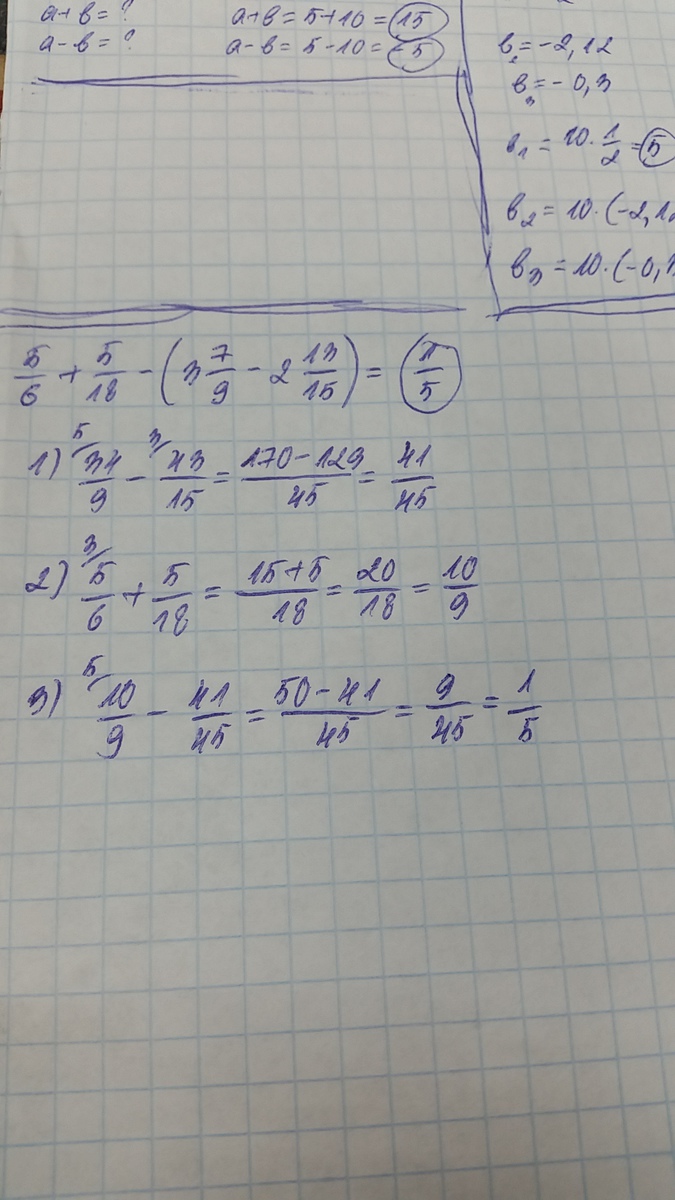 a+b = ? a+b = 5+10 = 15
a-b = ? a-b = 5-10 = -5
b₂ = -2,12
b₃ = -0,3
b₁ = 10·1/2 = 5
b₂ = 10·(-2,1
b₃ = 10·(-0,
5/6 + 5/18 - (3 7/9 - 2 13/15) = 1/5
1) 5/ 34/9 - 3/ 43/15 = 170-129/45 = 41/45
2) 3/ 5/6 + 5/18 = 15+5/18 = 20/18 = 10/9
3) 5/ 10/9 - 41/45 = 50-41/45 = 9/45 = 1/5